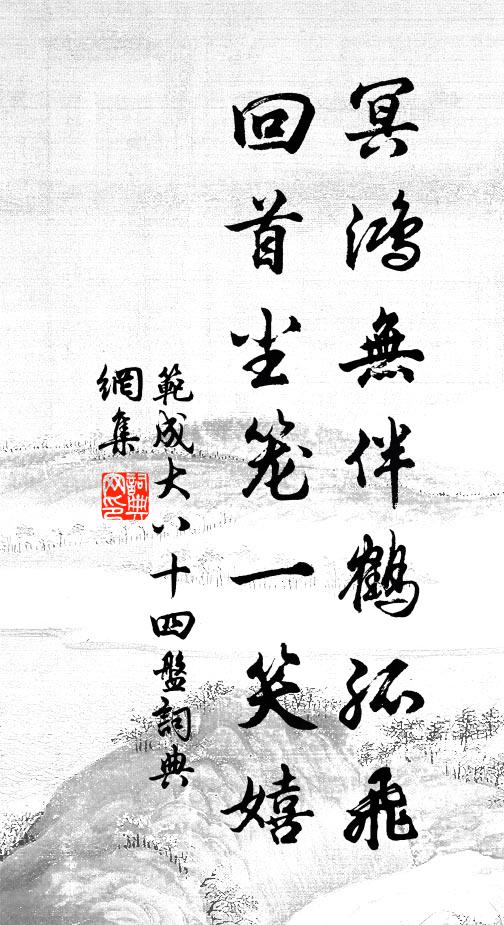 冥鴻無伴鶴孤飛
回首尘笼一笑嬉
範成大八十四盤詞典
網集
詞典
网印